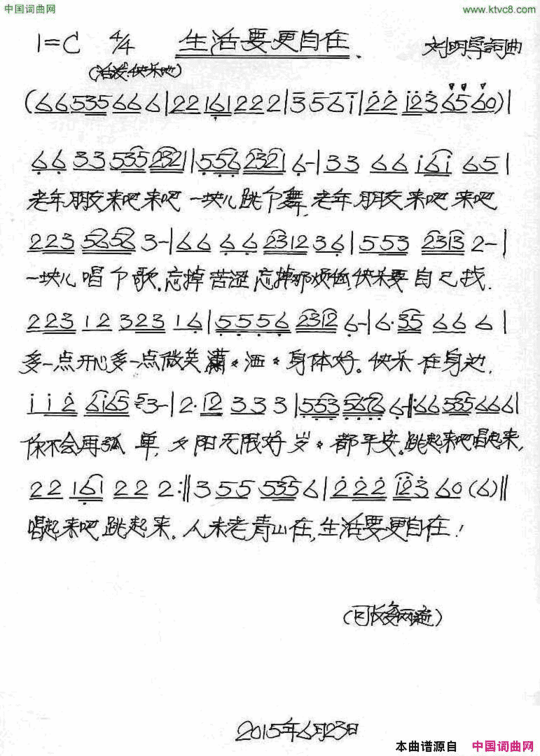 中国词曲网 www.ktvc8.com
1=C 4/4 生活要更自在 刘明学詞曲
(活泼快乐地)
(66535666|22161222|3561|221236560)|
6633535232|55562321 6-|33 66 161 65|
老年朋友来吧来吧 一块儿跳个舞,老年朋友来吧 来吧
223 5656 3-|66 66 2312 36|553 2313 2-|
一块儿唱个歌.忘掉苦涩 忘掉那烦恼,快乐要自己找.
223 12 323 16|5556 2312 6-|6·35 66 6|
多一点开心多一点微笑 潇〃洒〃身体好.快乐在身边,
112 6165 3-|2·12 333|553 5676 6-|:66535666|
你不会再孤单,夕阳无限好 岁〃都平安.跳起来吧唱起来,
22 161 222:||355 5356|222 123 60(6)||
唱起来吧,跳起来.人未老青山在,生活要更自在!
(可反复两遍)
2015年6月23日
本曲谱源自 中国词曲网